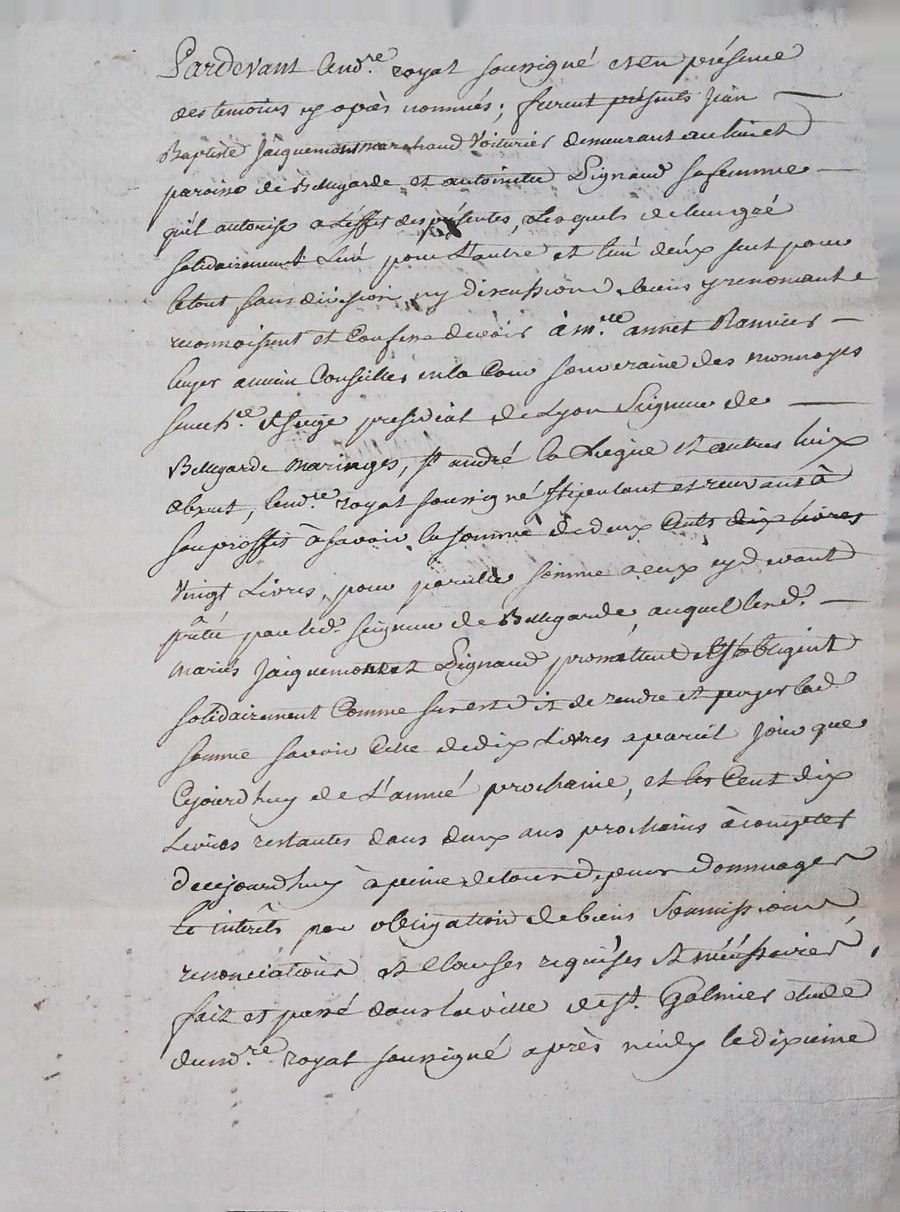 Pardevant le nd.re royal soussigné et en présence
des temoins cy après nommés; furent présents Jean
Baptiste Jacquemont marchand Voiturier demeurant au lieu et
paroisse de Bellegarde et antoinette Lignaud sa femme
qu'il autorise a L'effet des présentes, Lesquels de leur gré
solidairement L'un pour L'autre et l'un deux seul pour
le tout sans division ny discussion de biens y renonçant
reconnoissent et Confesse devoir à m.re annet Ranvier
ancien Conseiller en la Cour souveraine des monnoyes
senech.ée et siege presidial de Lyon Seigneur de
Bellegarde maringes, st andré la Liegue et autres lieux
absent, le nd.re royal soussigné stipulant et recevant à
son proffit à savoir la somme de deux Cents dix livres
Vingt Livres, pour pareille somme a eux cy devant
prêté par led. seigneur de Bellegarde, auquel lesd.
mariés Jacquemont et Lignaud promettent et s'obligent
solidairement Comme sus est dit de rendre et payer lad.
somme savoir Celle de dix Livres a pareil Jour que
Cejourd'huy de L'année prochaine, et les Cent dix
Livres restantes dans deux ans prochains à compter
de cejourd'huy à peine de tous depens dommages
et interêts par obligation de biens Soumissions
renonciations et Clauses requises et nécéssaires,
fait et passé dans la ville de st. Galmier etude
du nd.re royal soussigné après midy le dixieme